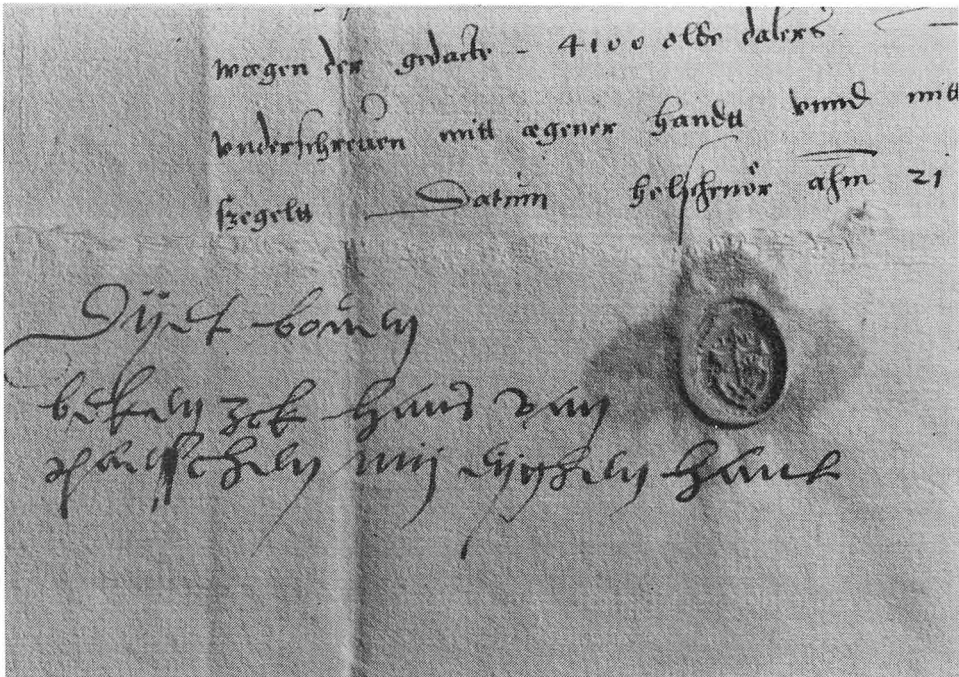 wegen der gedacte - 4100 olde dalers
vnderschreuen mitt egener handtt vnnd mitt
szegeltt Datum helschenör ahm 21
Dÿet bouen
beken ick Hans van
mij eÿghen hant